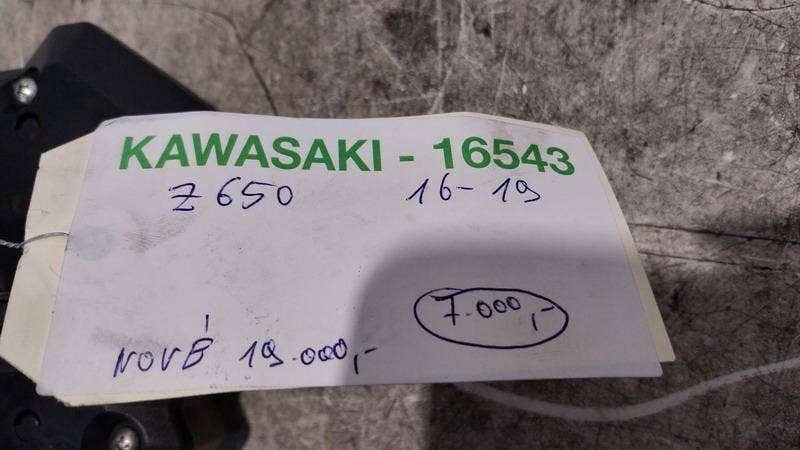 KAWASAKI - 16543
Z 650 16-19
7.000,-
NOVÉ 19.000,-